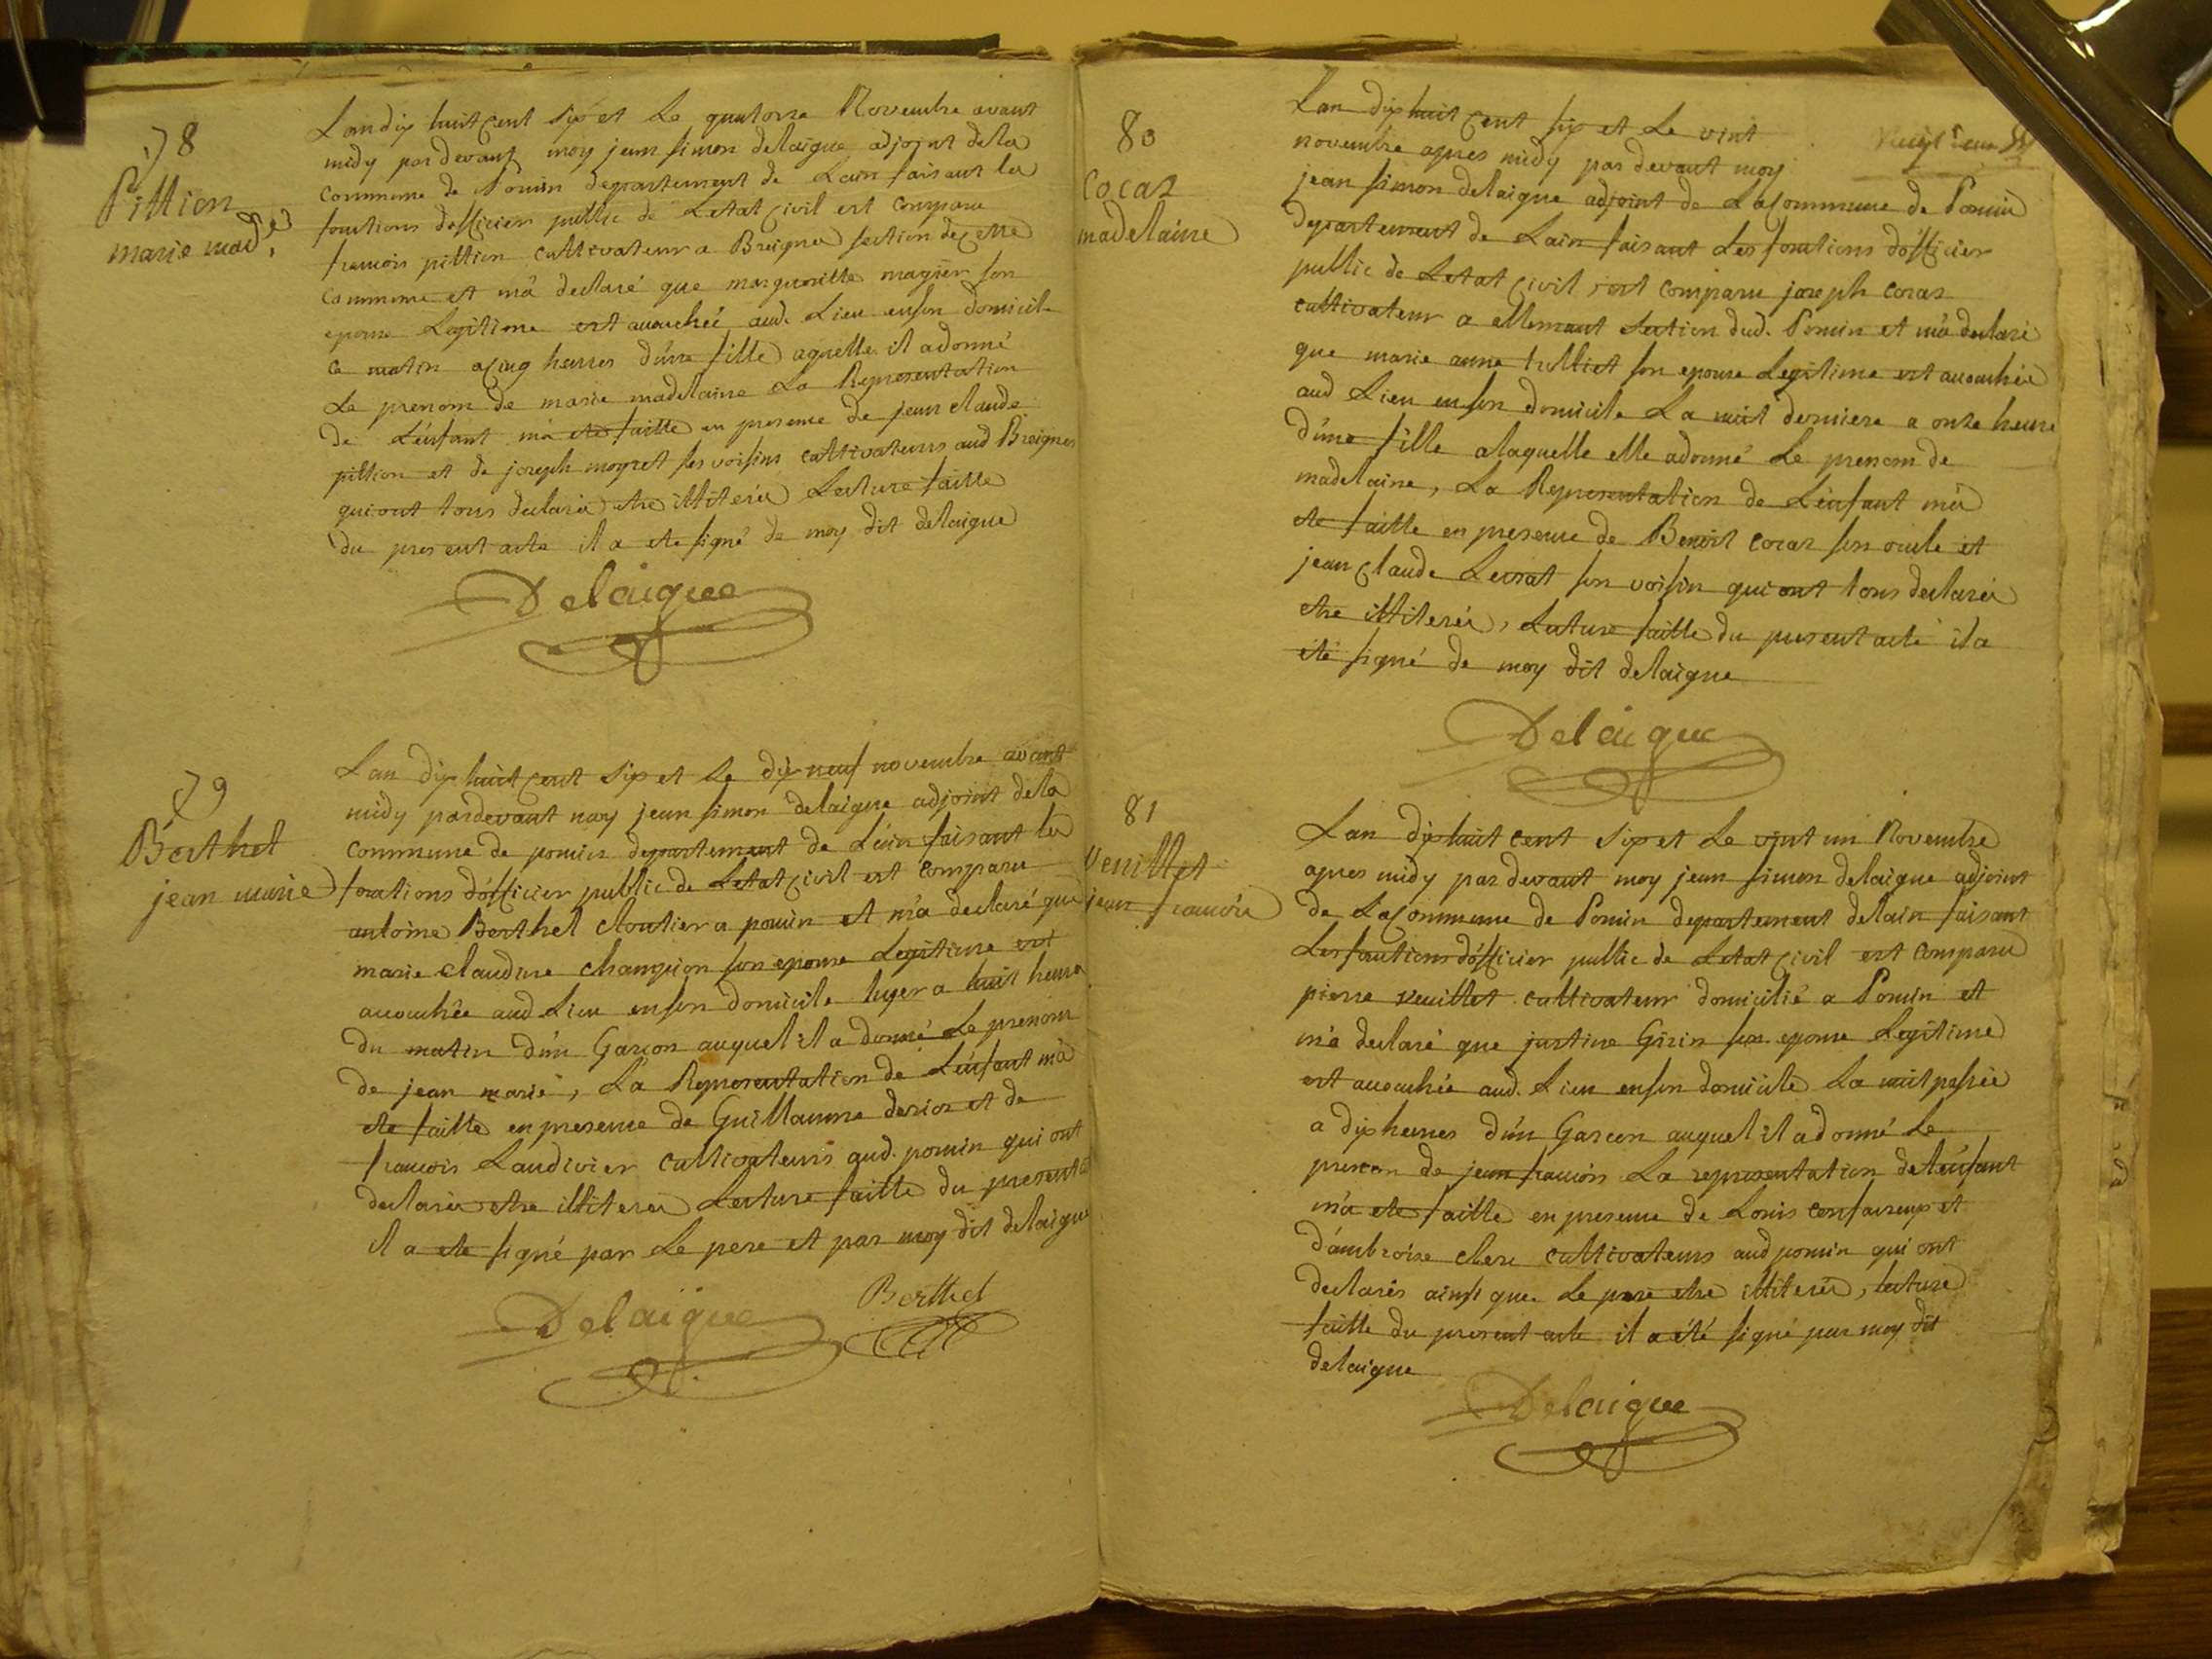 78
Pittion
marie mad.
Lan dix huit cent six et Le quatorze Novembre avant
midy par devant moy jean simon delaigue adjoint dela
commune de Poncin departement de Lain faisant les
fonctions dofficier public de Letat Civil est comparu
francois pittion cultivateur a Breignes section de cette
commune et m'a declaré que margueritte magnin son
epouse Legitime est acouchée aud. Lieu en son domicile
ce matin a cinq heures d'une fille a quelle il a donné
Le prenom de marie madelaine La Representation
de L'enfant m'a ete faitte en presence de jean claude
pittion et de joseph moyret ses voisins cultivateurs aud Breignes
qui ont tous declarés etre illiterés Lecture faitte
du present acte il a ete signé de moy dit delaigue
Delaigue
79
Berthet
jean marie
Lan dix huit cent six et Le dix neuf novembre avant
midy pardevant moy jean simon delaigue adjoint dela
commune de poncin departement de L'ain faisant les
fonctions d'officier public de Letat Civil est comparu
antoine Berthet cloutier a poncin et m'a declaré que
marie claudine changion son epouse Legitime est
acouchée aud Lieu en son domicile hyer a huit heures
du matin d'un Garcon auquel il a donné Le prenom
de jean marie, La Representation de L'enfant m'a
ete faitte en presence de Guillaume derios et de
francois Laudivier cultivateurs aud. poncin qui ont
declarés etre illiterés Lecture faitte du present
il a ete signé par Le pere et par moy dit delaigue
Delaigue Berthet
80
Cocaz
madelaine
Lan dix huit cent six et Le vint
novembre apres midy par devant moy
jean simon delaigue adjoint de La Commune de Poncin
departement de Lain faisant Les fonctions d'officier
public de Letat Civil est comparu joseph cocaz
cultivateur a allement section dud. Poncin et m'a declaré
que marie anne tulliet son epouse Legitime est acouchée
aud Lieu en son domicile La nuit derniere a onze heure
d'une fille a laquelle elle a donné Le prenom de
madelaine, La Representation de L'enfant m'a
ete faitte en presence de Benoit cocaz son oncle et
jean Claude Levrat son voisin qui ont tous declarés
etre illiterés, Lecture faitte du present acte il a
été signé de moy dit delaigue
Delaigue
81
Veuillet
jean francois
Lan dix huit cent six et Le vint un Novembre
apres midy par devant moy jean simon delaigue adjoint
de La Commune de Poncin departement delain faisant
Les fonctions d'officier public de Letat Civil est comparu
pierre veuillet cultivateur domicilié a Poncin et
m'a declaré que justine Girin son epouse Legitime
est acouchée aud. Lieu en son domicile La nuit passée
a dix heures d'un Garcon auquel il a donné Le
prenom de jean francois La representation de L'enfant
m'a ete faitte en presence de Louis et
d'ambroise clerc cultivateurs aud poncin qui ont
declarés ainsi que Le pere etre illiterés, lecture
faitte du present acte il a été signé par moy dit
delaigue
Delaigue